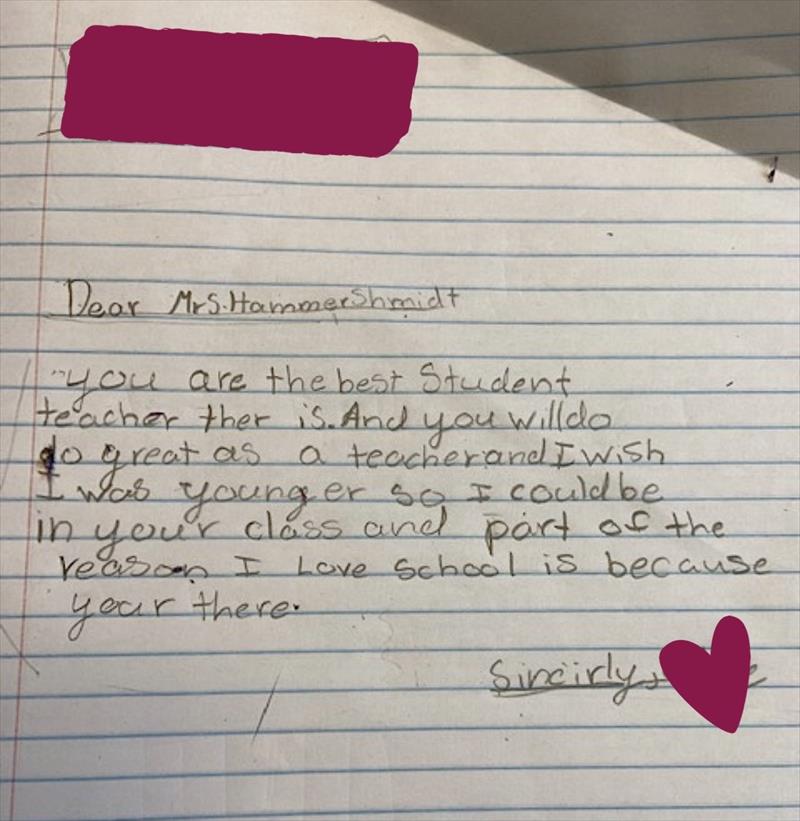 Dear Mrs.Hammershmidt
you are the best Student
teacher ther is.And you will do
do great as a teacher and I wish
I was younger so I could be
in your class and part of the
reason I Love school is because
your there.
Sincirly,